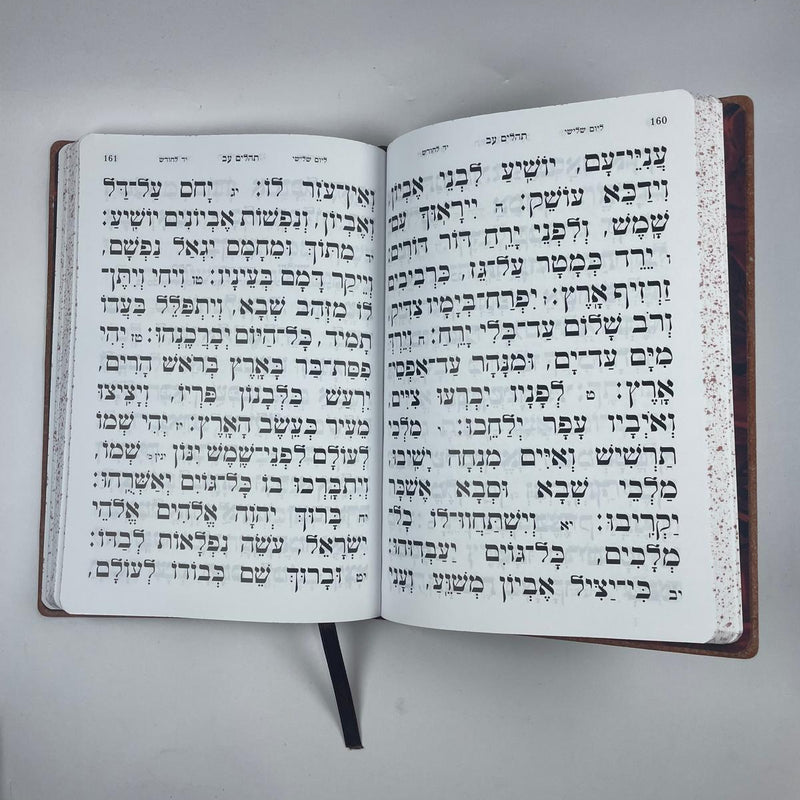 160
ליום שלישי תהלים עב יד לחודש
עֲנִיֵּי־עָם, יוֹשִׁיעַ לִבְנֵי אֶבְיוֹן,
וִידַכֵּא עוֹשֵׁק: ה יִירָאוּךָ עִם
שָׁמֶשׁ, וְלִפְנֵי יָרֵחַ דּוֹר דּוֹרִים:
ו יֵרֵד כְּמָטָר עַל־גֵּז, כִּרְבִיבִים
זַרְזִיף אָרֶץ: ז יִפְרַח־בְּיָמָיו צַדִּיק,
וְרֹב שָׁלוֹם עַד־בְּלִי יָרֵחַ: ח וְיֵרְדְּ
מִיָּם עַד־יָם, וּמִנָּהָר עַד־אַפְסֵי־
אָרֶץ: ט לְפָנָיו יִכְרְעוּ צִיִּים,
וְאֹיְבָיו עָפָר יְלַחֵכוּ: י מַלְכֵי
תַרְשִׁישׁ וְאִיִּים מִנְחָה יָשִׁיבוּ,
מַלְכֵי שְׁבָא וּסְבָא אֶשְׁכָּר
יַקְרִיבוּ: יא וְיִשְׁתַּחֲווּ־לוֹ כָל־
מְלָכִים, כָּל־גּוֹיִם יַעַבְדוּהוּ:
יב כִּי־יַצִּיל אֶבְיוֹן מְשַׁוֵּעַ, וְעָנִי
ליום שלישי תהלים עב יד לחודש 161
וְאֵין־עֹזֵר לוֹ: יג יָחֹס עַל־דַּל
וְאֶבְיוֹן, וְנַפְשׁוֹת אֶבְיוֹנִים יוֹשִׁיעַ:
יד מִתּוֹךְ וּמֵחָמָס יִגְאַל נַפְשָׁם,
וְיֵיקַר דָּמָם בְּעֵינָיו: טו וִיחִי וְיִתֶּן־
לוֹ מִזְּהַב שְׁבָא, וְיִתְפַּלֵּל בַּעֲדוֹ
תָמִיד, כָּל־הַיּוֹם יְבָרְכֶנְהוּ: טז יְהִי
פִסַּת־בַּר בָּאָרֶץ בְּרֹאשׁ הָרִים,
יִרְעַשׁ כַּלְּבָנוֹן פִּרְיוֹ, וְיָצִיצוּ
מֵעִיר כְּעֵשֶׂב הָאָרֶץ: יז יְהִי שְׁמוֹ
לְעוֹלָם לִפְנֵי־שֶׁמֶשׁ יִנּוֹן ינין כ׳ שְׁמוֹ,
וְיִתְבָּרְכוּ בוֹ כָּל־גּוֹיִם יְאַשְּׁרוּהוּ:
יח בָּרוּךְ יְהֹוָה אֱלֹהִים אֱלֹהֵי
יִשְׂרָאֵל, עֹשֵׂה נִפְלָאוֹת לְבַדּוֹ:
יט וּבָרוּךְ שֵׁם כְּבוֹדוֹ לְעוֹלָם,